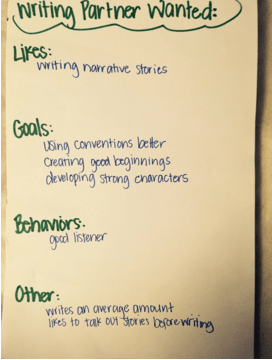 Writing Partner Wanted:
Likes:
writing narrative stories
Goals:
using conventions better
Creating good beginnings
developing strong characters
Behaviors:
good listener
Other:
writes an average amount
likes to talk out stories before writing